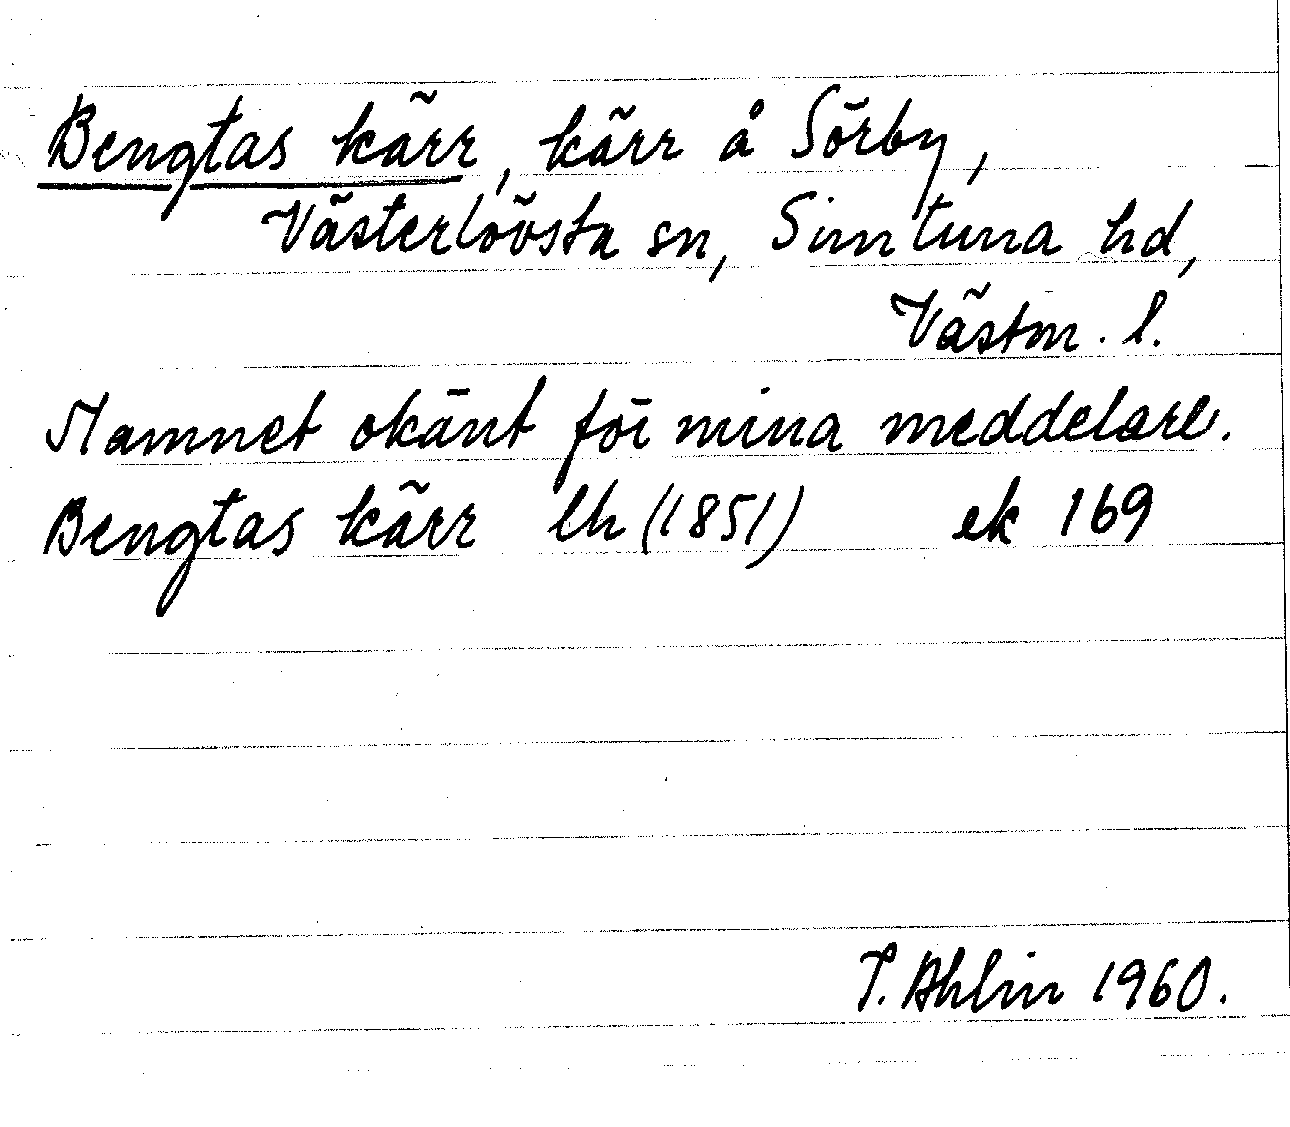 Bengtas kärr, kärr å Sörby,
Västerlövsta sn, Simtuna hd,
Västm. l.
Namnet okänt för mina meddelare.
Bengtas kärr lh (1851) ek 169
T. Ahlin 1960.